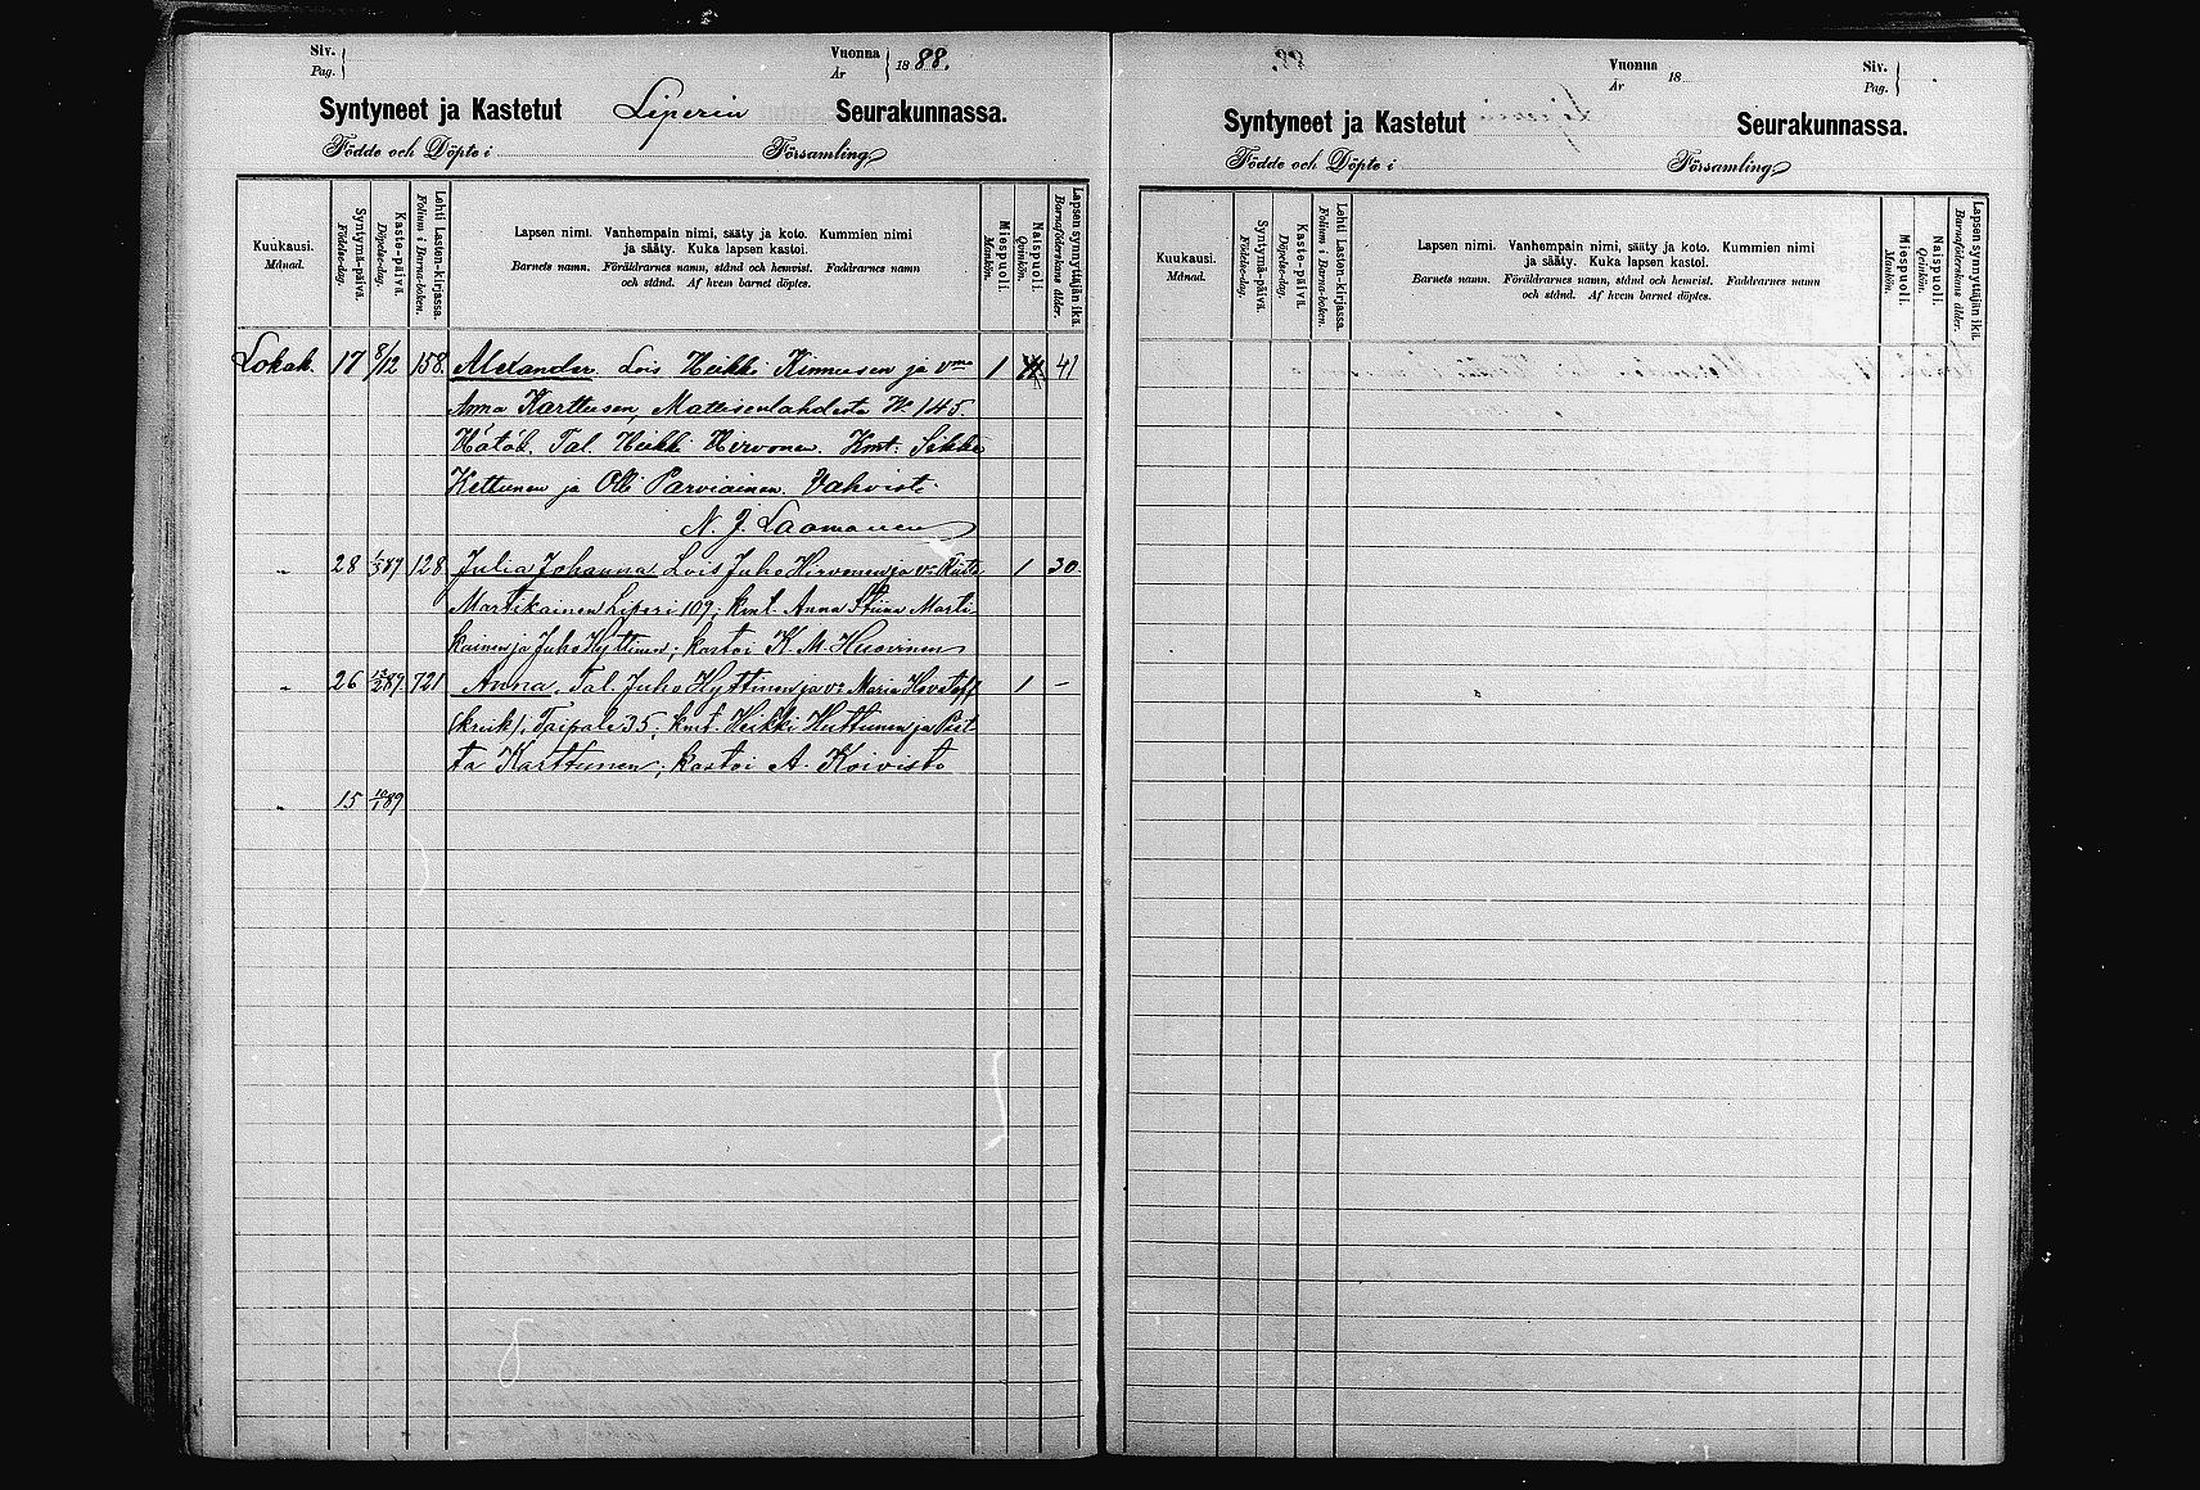 Siv.
Pag.
Vuonna
År
1888.
Syntyneet ja Kastetut Liperin Seurakunnassa.
Födde och Döpte i Församling
Kuukausi.
Månad.
Syntymä-päivä.
Födelse-dag.
Kaste-päivä.
Döpelse-dag.
Lehti Lasten-kirjassa.
Folium i Barna-boken.
Lapsen nimi. Vanhempain nimi, sääty ja koto. Kummien nimi
ja sääty. Kuka lapsen kastoi.
Barnets namn. Föräldrarnes namn, stånd och hemvist. Faddrarnes namn
och stånd. Af hvem barnet döptes.
Miespuoli.
Mankön.
Naispuoli.
Qvinkön.
Lapsen synnyttäjän ikä.
Barnaföderskans ålder.
Lokak. 17 8/12 158. Alexander. Lois Heikki Kinnusen ja vmo 1 41
Anna Karttusen, Mattisenlahdesta No 145.
Hätäk. Tal. Heikki Hirvonen. Kmt:
Kettunen ja Olli Parviainen. Vahvisti
N. J. Laamanen
" 28 1/5 89 128 Julia Johanna Lois Juho Hirvonen ja vo 1 30
Martikainen Liperi 109; kmt. Anna Stiina Marti-
kainen ja Juho Hyttinen; kastoi K. M. Huovinen
" 26 89. 721 Anna, Tal. Juho Hyttinen ja vo Maria 1 –
(kreik), Taipale 35; kmt. Heikki Huttunen ja
ta Karttunen; kastoi A. Koivisto
" 15 10/1 89
Vuonna
År
18
Siv.
Pag.
Syntyneet ja Kastetut Seurakunnassa.
Födde och Döpte i Församling
Kuukausi.
Månad.
Syntymä-päivä.
Födelse-dag.
Kaste-päivä.
Döpelse-dag.
Lehti Lasten-kirjassa.
Folium i Barna-boken.
Lapsen nimi. Vanhempain nimi, sääty ja koto. Kummien nimi
ja sääty. Kuka lapsen kastoi.
Barnets namn. Föräldrarnes namn, stånd och hemvist. Faddrarnes namn
och stånd. Af hvem barnet döptes.
Miespuoli.
Mankön.
Naispuoli.
Qvinkön.
Lapsen synnyttäjän ikä.
Barnaföderskans ålder.